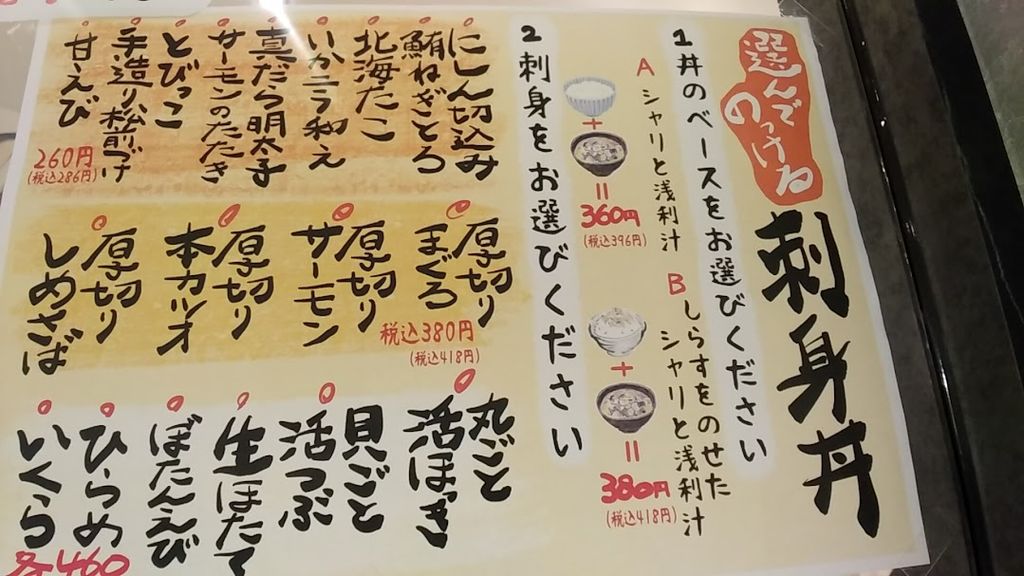 選んで
のっける
刺身丼
1丼のベースをお選びください
A シャリと浅利汁
360円
(税込396円)
B しらすをのせた
シャリと浅利汁
380円
(税込418円)
2 刺身をお選びください
にしん切込み
鮪ねぎとろ
北海たこ
いかニラ和え
真だら明太子
サーモンのたたき
とびっこ
手造り松前づけ
甘えび
260円
(税込286円)
厚切り
まぐろ
厚切り
サーモン
厚切り
本カツオ
厚切り
しめさば
税込380円
(税込418円)
丸ごと
活ほっき
貝ごと
活つぶ
生ほたて
ぼたんえび
ひらめ
いくら
各460